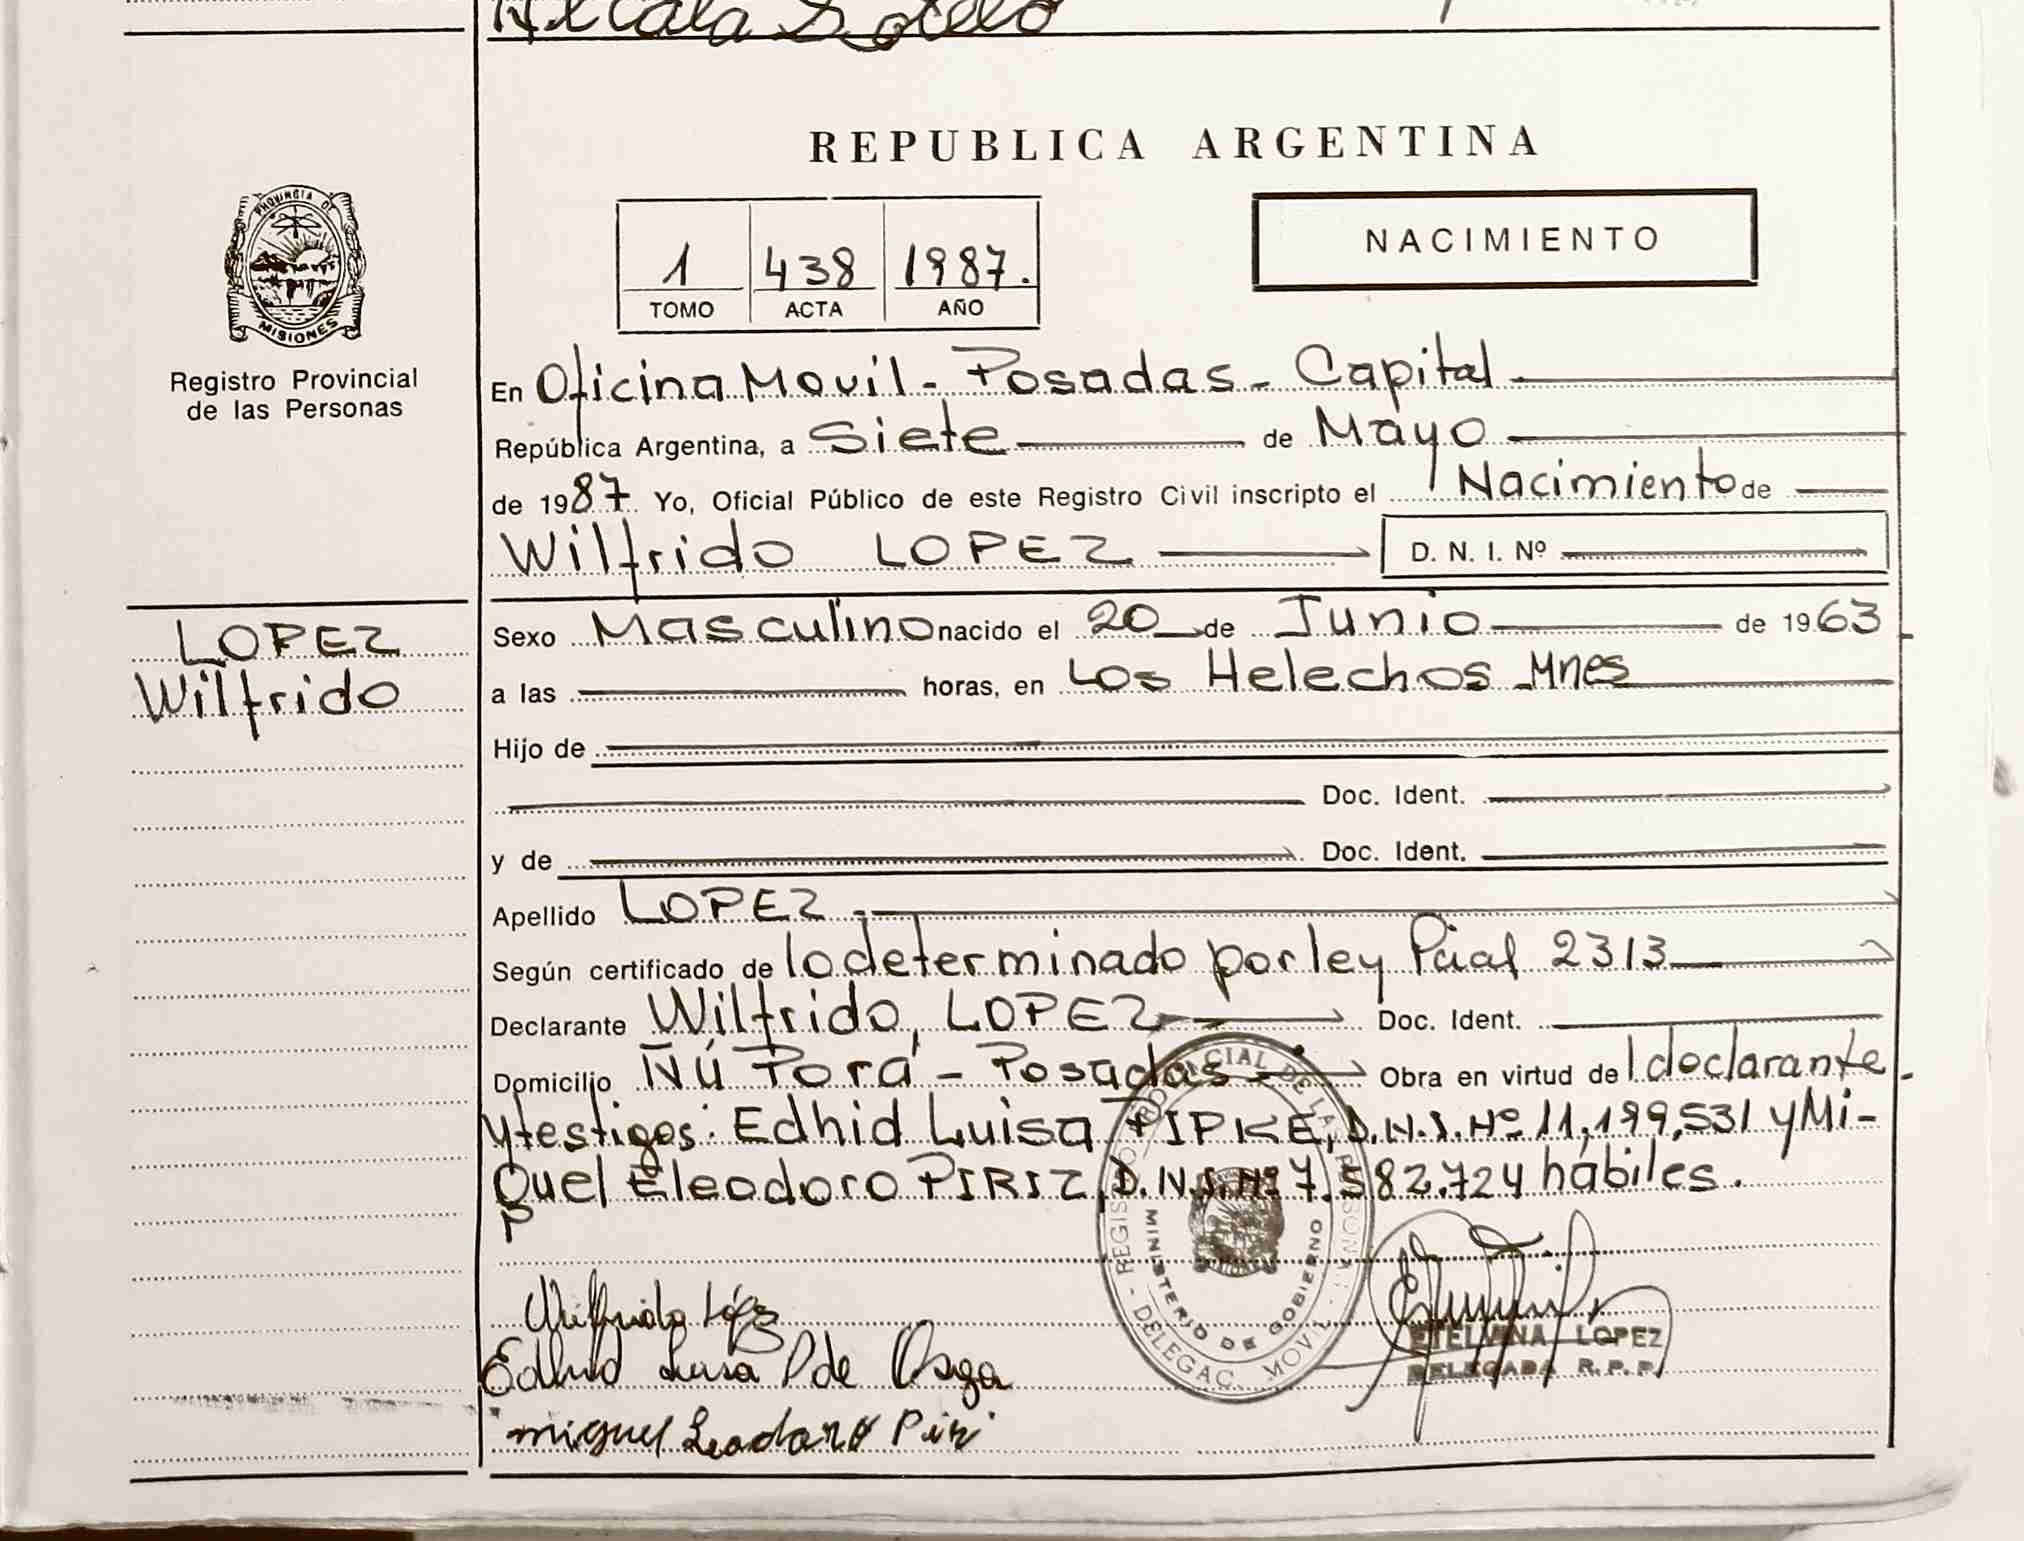 Alcala Sotelo
REPUBLICA ARGENTINA
PROVINCIA DE
MISIONES
Registro Provincial
de las Personas
1 438 1987.
TOMO ACTA AÑO
NACIMIENTO
En Oficina Movil - Posadas - Capital
República Argentina, a Siete de Mayo
de 1987 Yo, Oficial Público de este Registro Civil inscripto el Nacimiento de
Wilfrido LOPEZ D. N. I. Nº
LOPEZ
Wilfrido
Sexo Masculino nacido el 20 de Junio de 1963
a las horas, en Los Helechos Mnes
Hijo de
Doc. Ident.
y de Doc. Ident.
Apellido LOPEZ
Según certificado de lo determinado por ley Pcial 2313
Declarante Wilfrido, LOPEZ Doc. Ident.
Domicilio Ñú Porá - Posadas Obra en virtud del declarante
y testigos: Edhid Luisa PIPKE, D.N.I. Nº 11,199,531 y Mi-
guel Eleodoro PIRIZ, D.N.I. Nº 7.582.724 hábiles.
REGISTRO PROVINCIAL DE LAS PERSONAS
MINISTERIO DE GOBIERNO
- DELEGAC. MOVIL -
Wilfrido López
Edhid Luisa P de Osga
miguel Leodoro Piriz
ETELVINA LOPEZ
DELEGADA R.P.P.